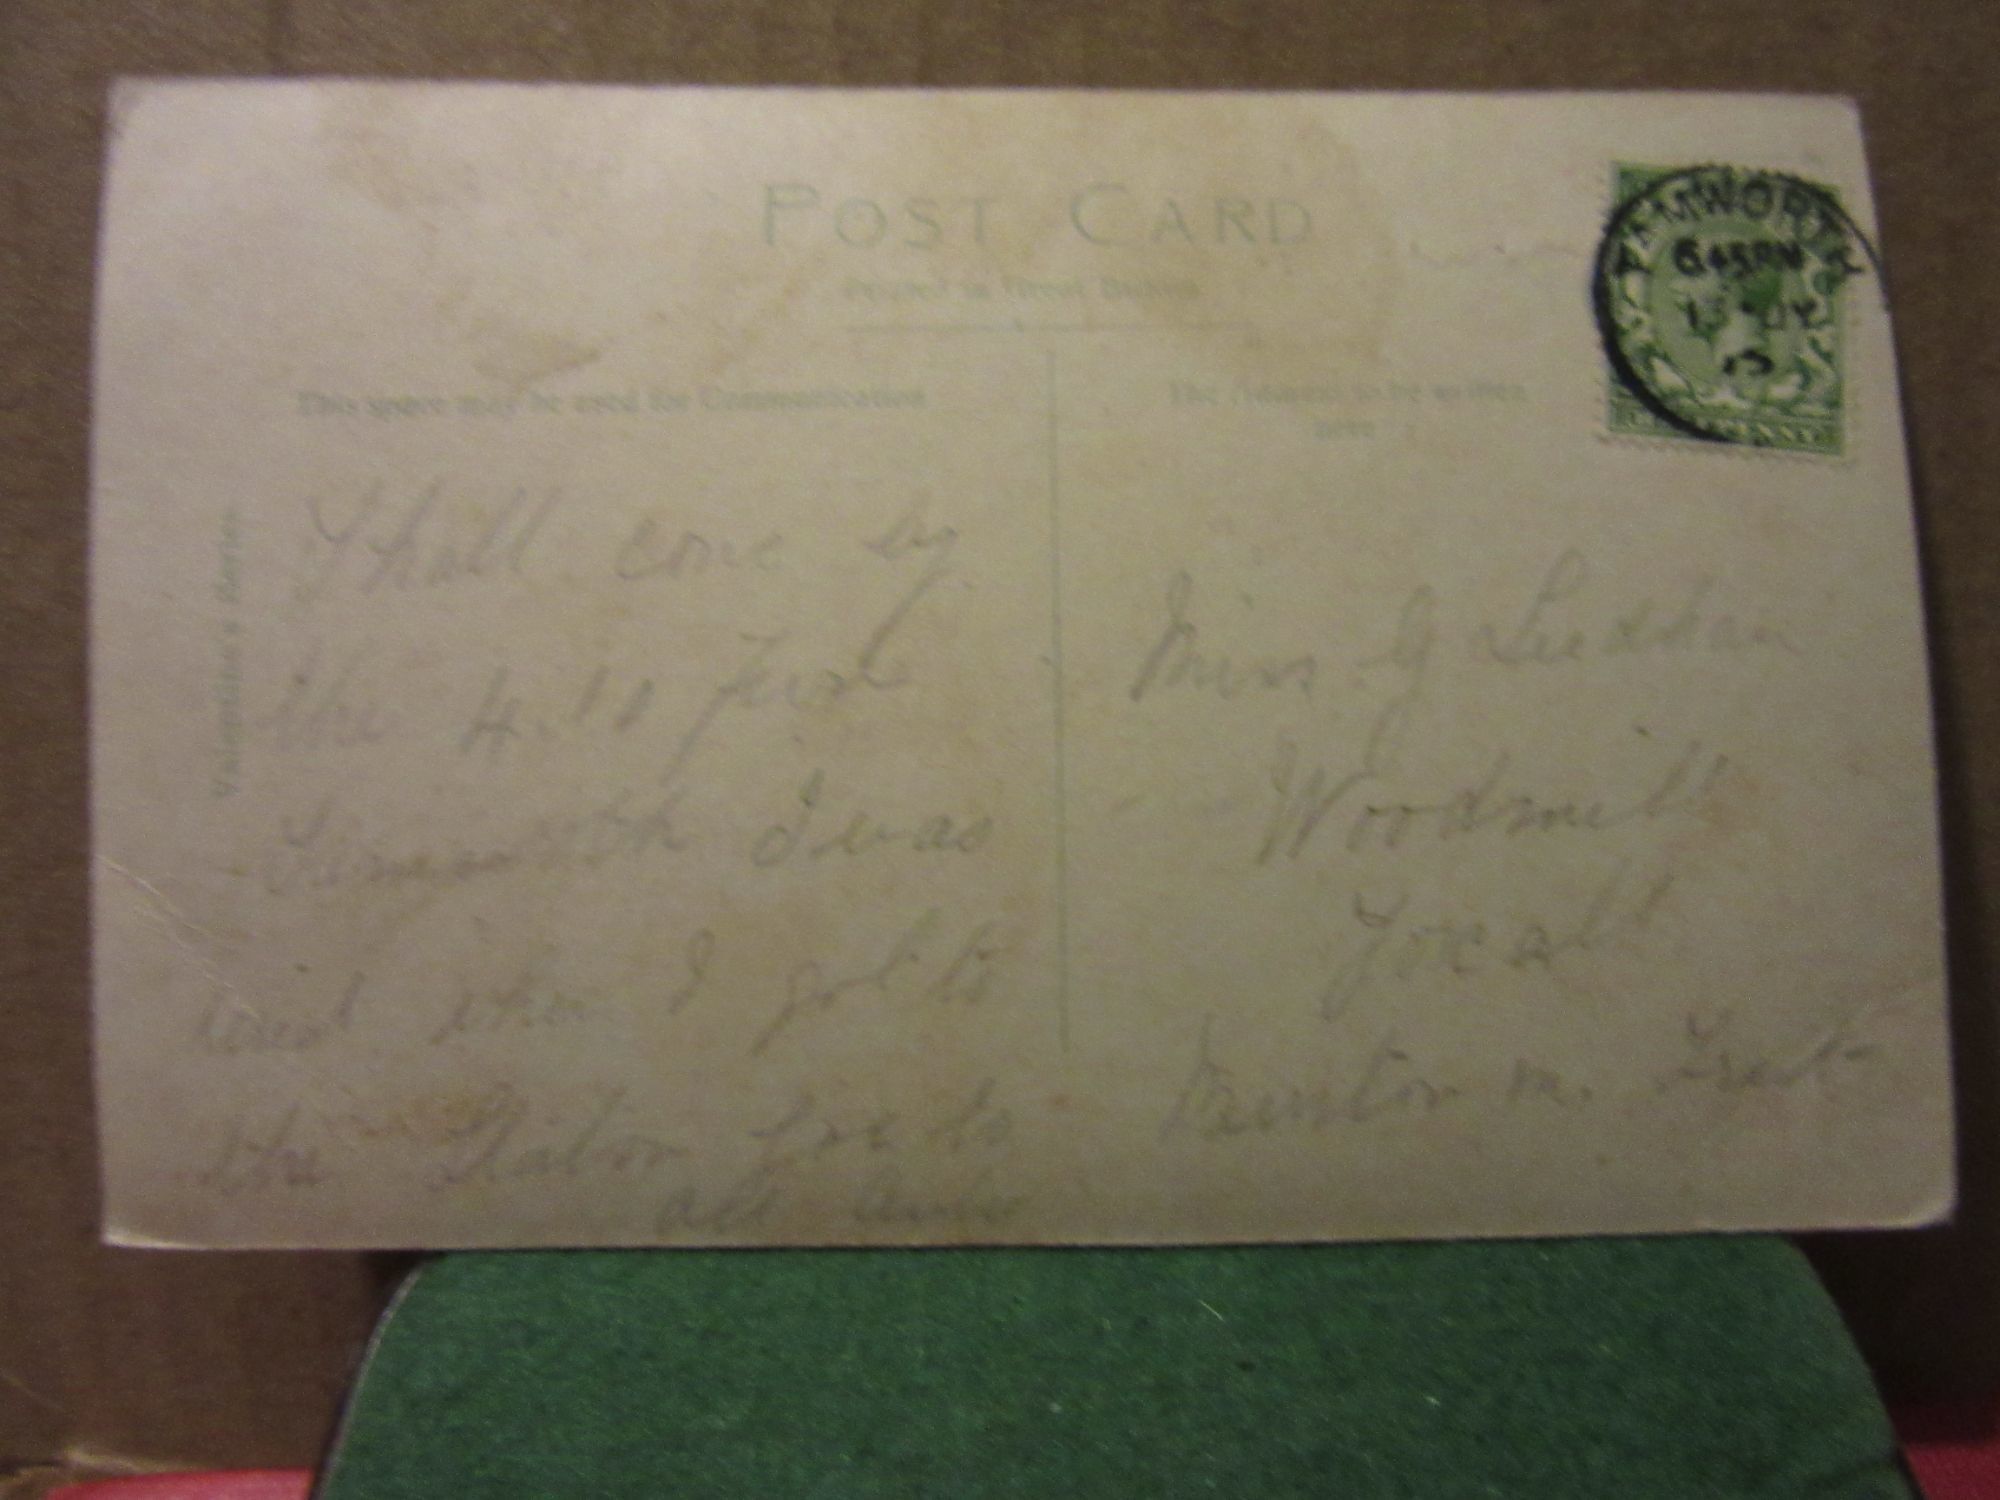 POST CARD
Printed in Great Britain
This space may be used for Communication
The Address to be written
here
TAMWORTH
6.45PM
Valentine's Series
Shall come by
the 4.10 from
Tamworth I was
when I got to
the Station love to
all
Miss G
Woodmill
Yoxall
Burton on Trent